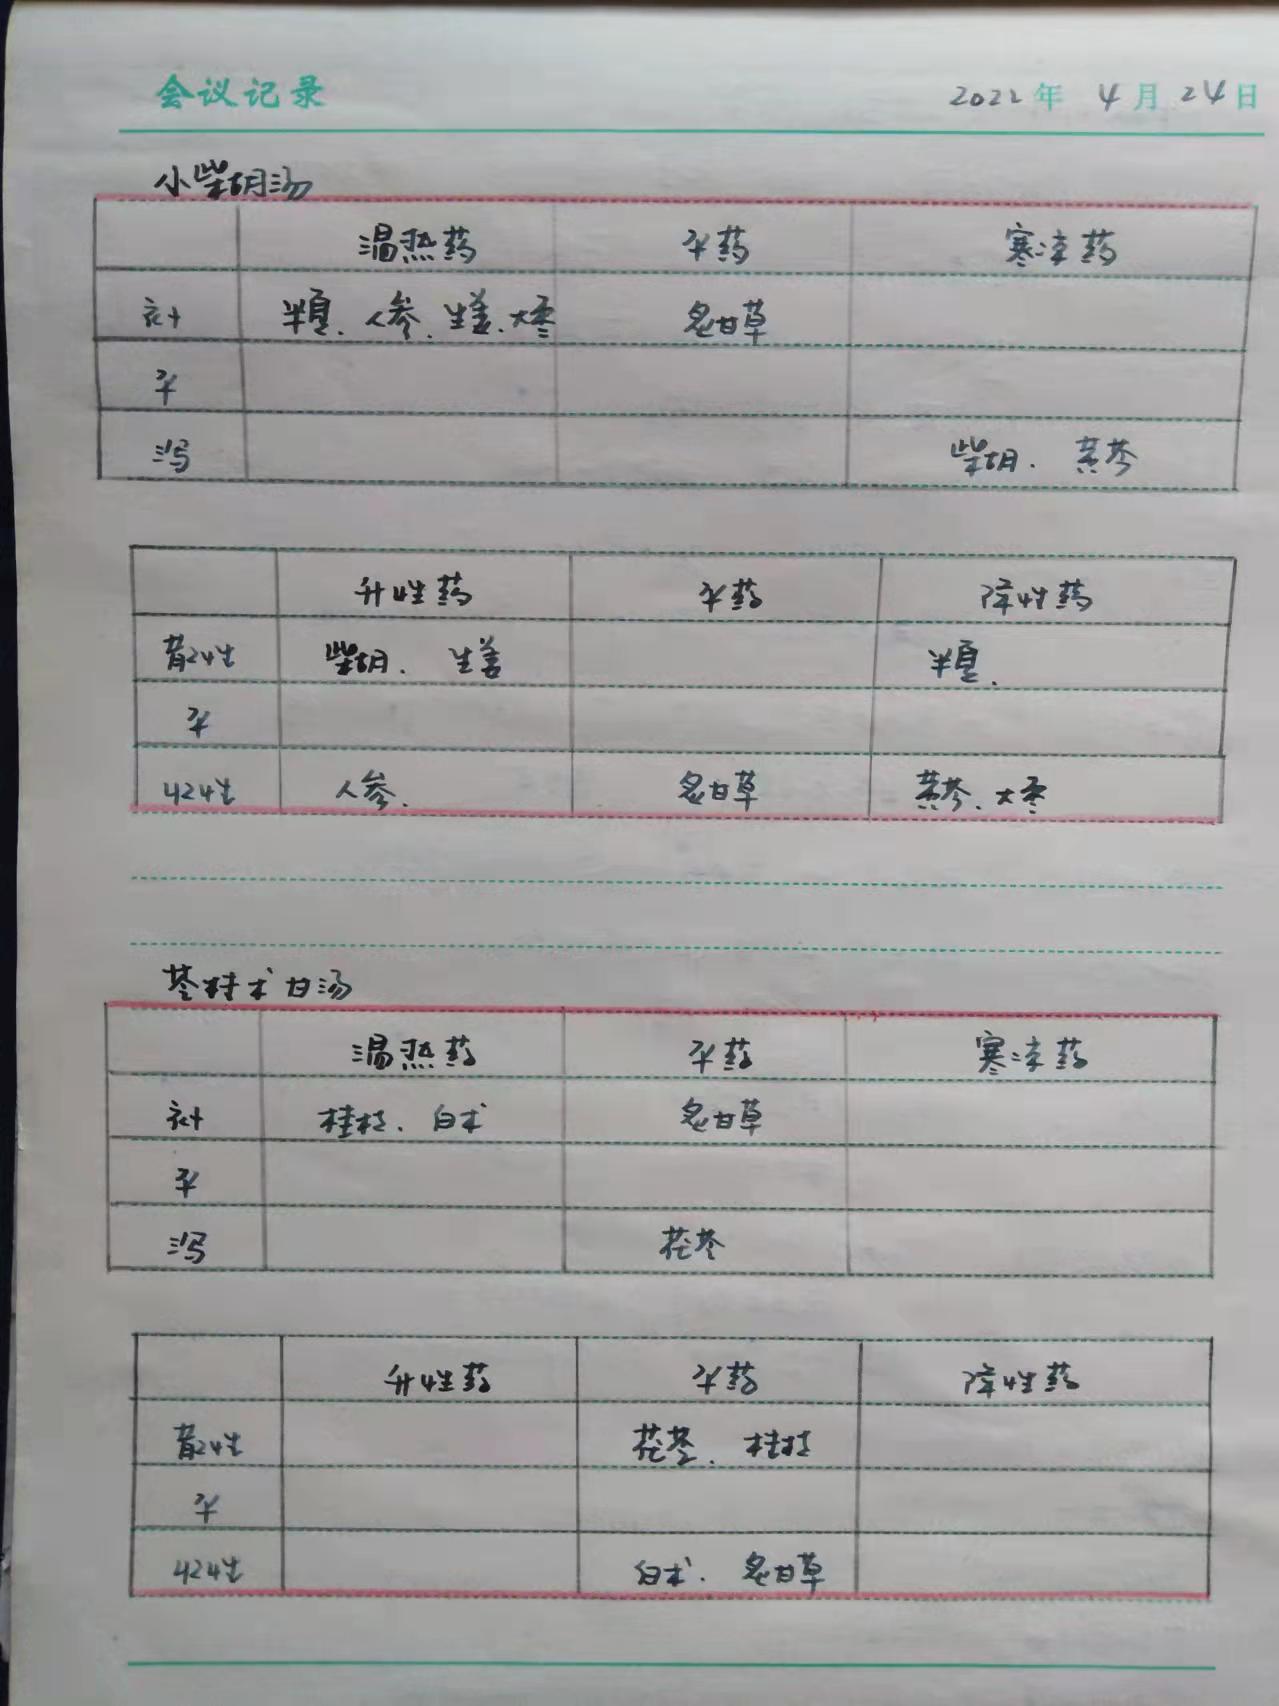 会议记录 2022年 4月24日
小柴胡汤
温热药 平药 寒凉药
补 半夏、人参、生姜、大枣 炙甘草
平
泻 柴胡、黄芩
升性药 平药 降性药
散性 柴胡、生姜 半夏、
平
收性 人参、 炙甘草 黄芩、大枣
苓桂术甘汤
温热药 平药 寒凉药
补 桂枝、白术 炙甘草
平
泻 茯苓
升性药 平药 降性药
散性 茯苓、桂枝
平
收性 白术、炙甘草